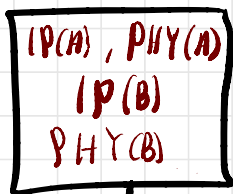 IP(A), PHY(A)
IP(B)
PHY(B)